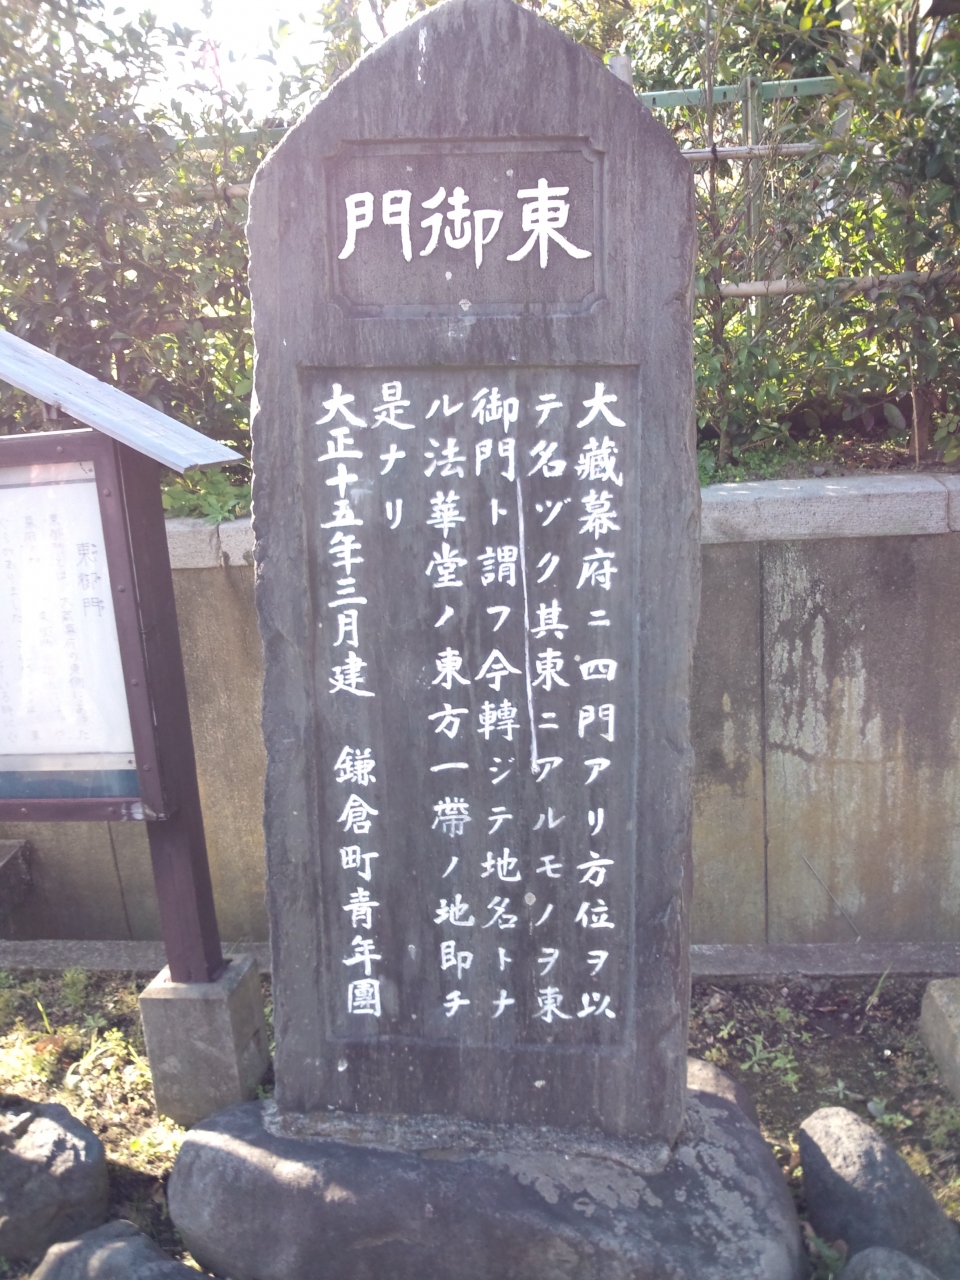 東御門
大藏幕府ニ四門アリ方位ヲ以
テ名ヅク其東ニアルモノヲ東
御門ト謂フ今轉ジテ地名トナ
ル法華堂ノ東方一帶ノ地即チ
是ナリ
大正十五年三月建 鎌倉町青年團
東御門